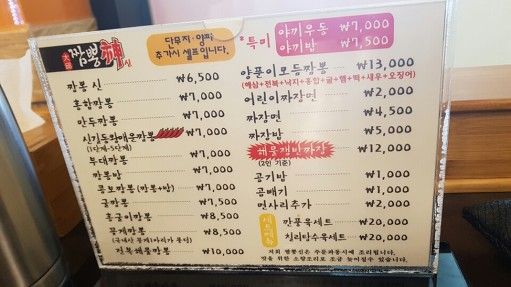 짬뽕神신
단무지·양파
추가시 셀프입니다.
*특미
야끼우동 ₩7,000
야끼밥 ₩7,500
짬뽕 신 ₩6,500
홍합짬뽕 ₩7,000
만두짬뽕 ₩7,000
신길동확매운짬뽕 ₩7,000
(1단계~5단계)
부대짬뽕 ₩7,000
짬뽕밥 ₩7,000
콤보짬뽕 (짬뽕+밥) ₩7,000
굴짬뽕 ₩7,500
홍굴이짬뽕 ₩8,500
꽃게짬뽕 ₩8,500
(국내산 꽃게1마리가 퐁당)
전복해물짬뽕 ₩10,000
양푼이모듬짬뽕 ₩13,000
(해삼+전복+낙지+홍합+굴+햄+떡+새우+오징어)
어린이짜장면 ₩2,000
짜장면 ₩4,500
짜장밥 ₩5,000
해물쟁반짜장 ₩12,000
(2인 기준)
공기밥 ₩1,000
곱빼기 ₩1,000
면사리추가 ₩2,000
세트메뉴
깐풍육세트 ₩20,000
칠리탕수육세트 ₩20,000
저희 짬뽕신은 주문과동시에 조리됩니다.
맛을 위한 소량조리로 조금 늦어질수 있습니다.